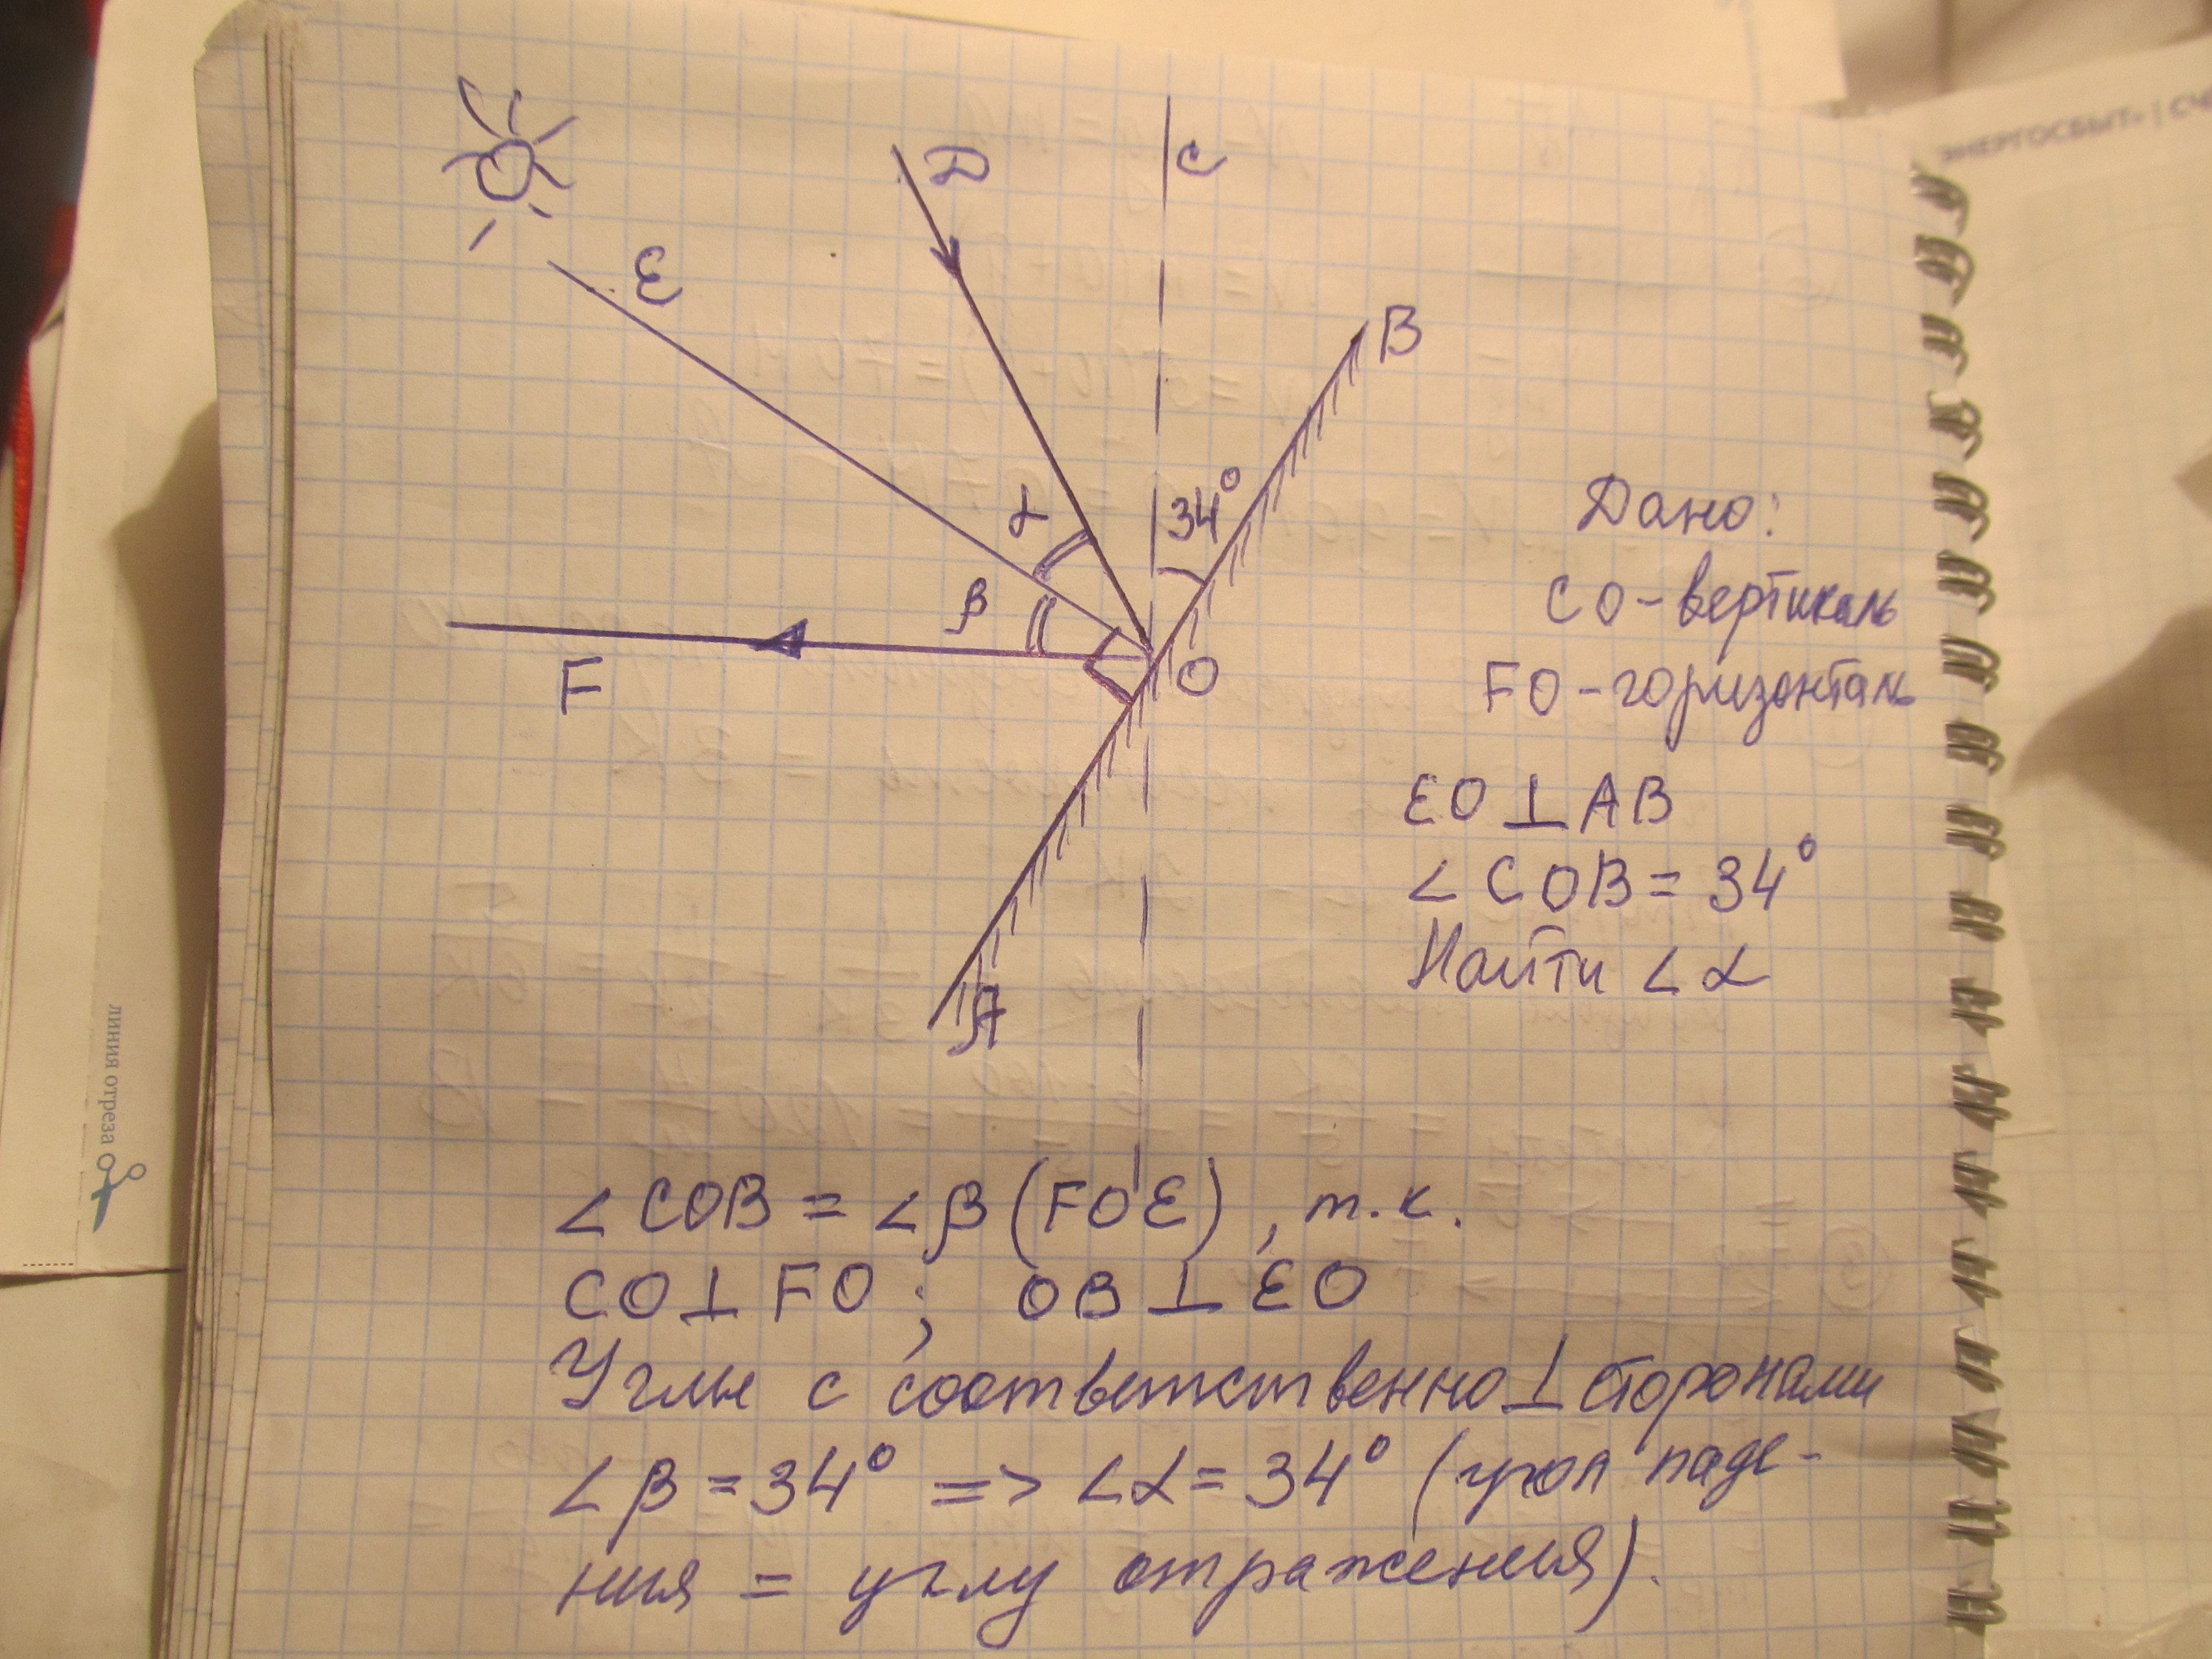 ЭНЕРГОСБЫТ» | СЧ
Д
C
E
B
34°
α
β
F
O
A
Дано:
CO - вертикаль
FO - горизонталь
EO ⊥ AB
∠ COB = 34°
Найти ∠ α
∠ COB = ∠ β (FOE), т.к.
CO ⊥ FO; OB ⊥ EO
Углы с соответственно ⊥ сторонами
∠ β = 34° => ∠ α = 34° (угол паде-
ния = углу отражения).
линия отреза